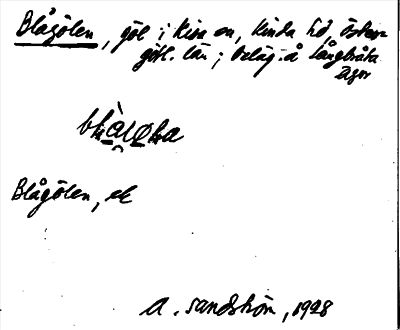 Blågölen, göl i Kisa sn, Kinda hd, Öster-
götl. län; beläg. å Långbråta
ägor
Blågölen, ek
A. Sandström, 1928